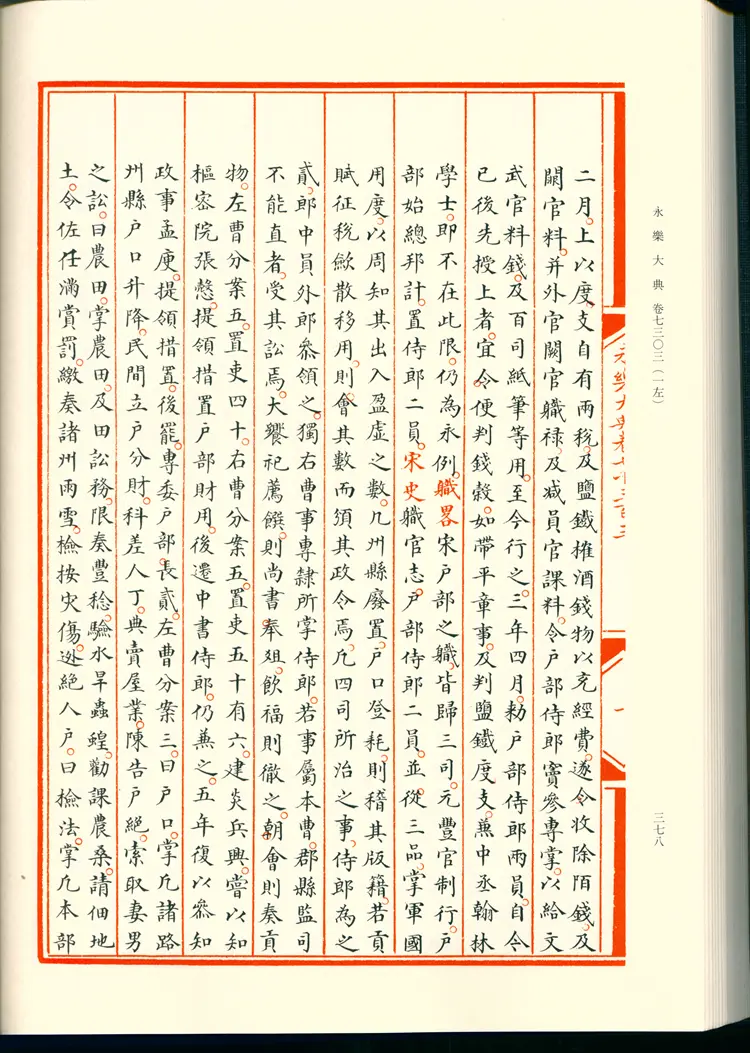 永樂大典 卷七三〇三（一左）
三七八
永樂大典卷七千三百三
一
二月。上以度支自有兩稅。及鹽鐵搉酒錢物以充經費。遂令收除陌錢。及
闕官料。并外官闕官職祿。及減員官課料。令戶部侍郎竇參專掌。以給文
武官料錢。及百司紙筆等用。至今行之。三年四月。勑戶部侍郎兩員。自今
已後先授上者。宜令便判錢穀。如帶平章事。及判鹽鐵度支。兼中丞翰林
學士。即不在此限。仍為永例。職畧宋戶部之職。皆歸三司。元豐官制行。戶
部始總邦計。置侍郎二員。宋史職官志。戶部侍郎二員。並從三品。掌軍國
用度。以周知其出入盈虛之數。凡州縣廢置。戶口登耗。則稽其版籍。若貢
賦征稅歛散移用。則會其數而頒其政令焉。凡四司所治之事。侍郎為之
貳。郎中員外郎叅領之。獨右曹事專隸所掌侍郎。若事屬本曹。郡縣監司
不能直者。受其訟焉。大饗祀薦饌。則尚書奉俎。飲福則徹之。朝會則奏貢
物。左曹分案五。置吏四十。右曹分案五。置吏五十有六。建炎兵興。嘗以知
樞密院張愨。提領措置戶部財用。後遷中書侍郎。仍兼之。五年復以叅知
政事孟庾。提領措置。後罷。專委戶部。長貳。左曹分案三。曰戶口。掌凡諸路
州縣戶口升降。民間立戶分財。科差人丁。典賣屋業。陳告戶絕。索取妻男
之訟。曰農田。掌農田。及田訟務。限奏豐稔。驗水旱蟲蝗。勸課農桑。請佃地
土。令佐任滿賞罰。繳奏諸州雨雪。檢按灾傷。逃絕人戶。曰檢法。掌凡本部